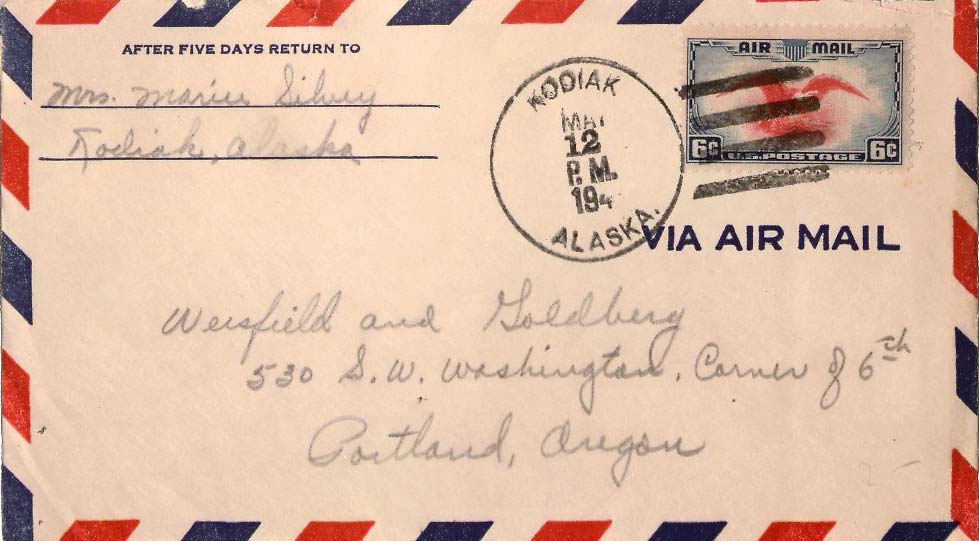 AFTER FIVE DAYS RETURN TO
Mrs. Marie Silvey
Kodiak, Alaska
KODIAK
MAY
12
P.M.
194
ALASKA.
AIR MAIL
6¢ U.S. POSTAGE 6¢
VIA AIR MAIL
Weisfield and Goldberg
530 S.W. Washington, Corner of 6th
Portland, Oregon